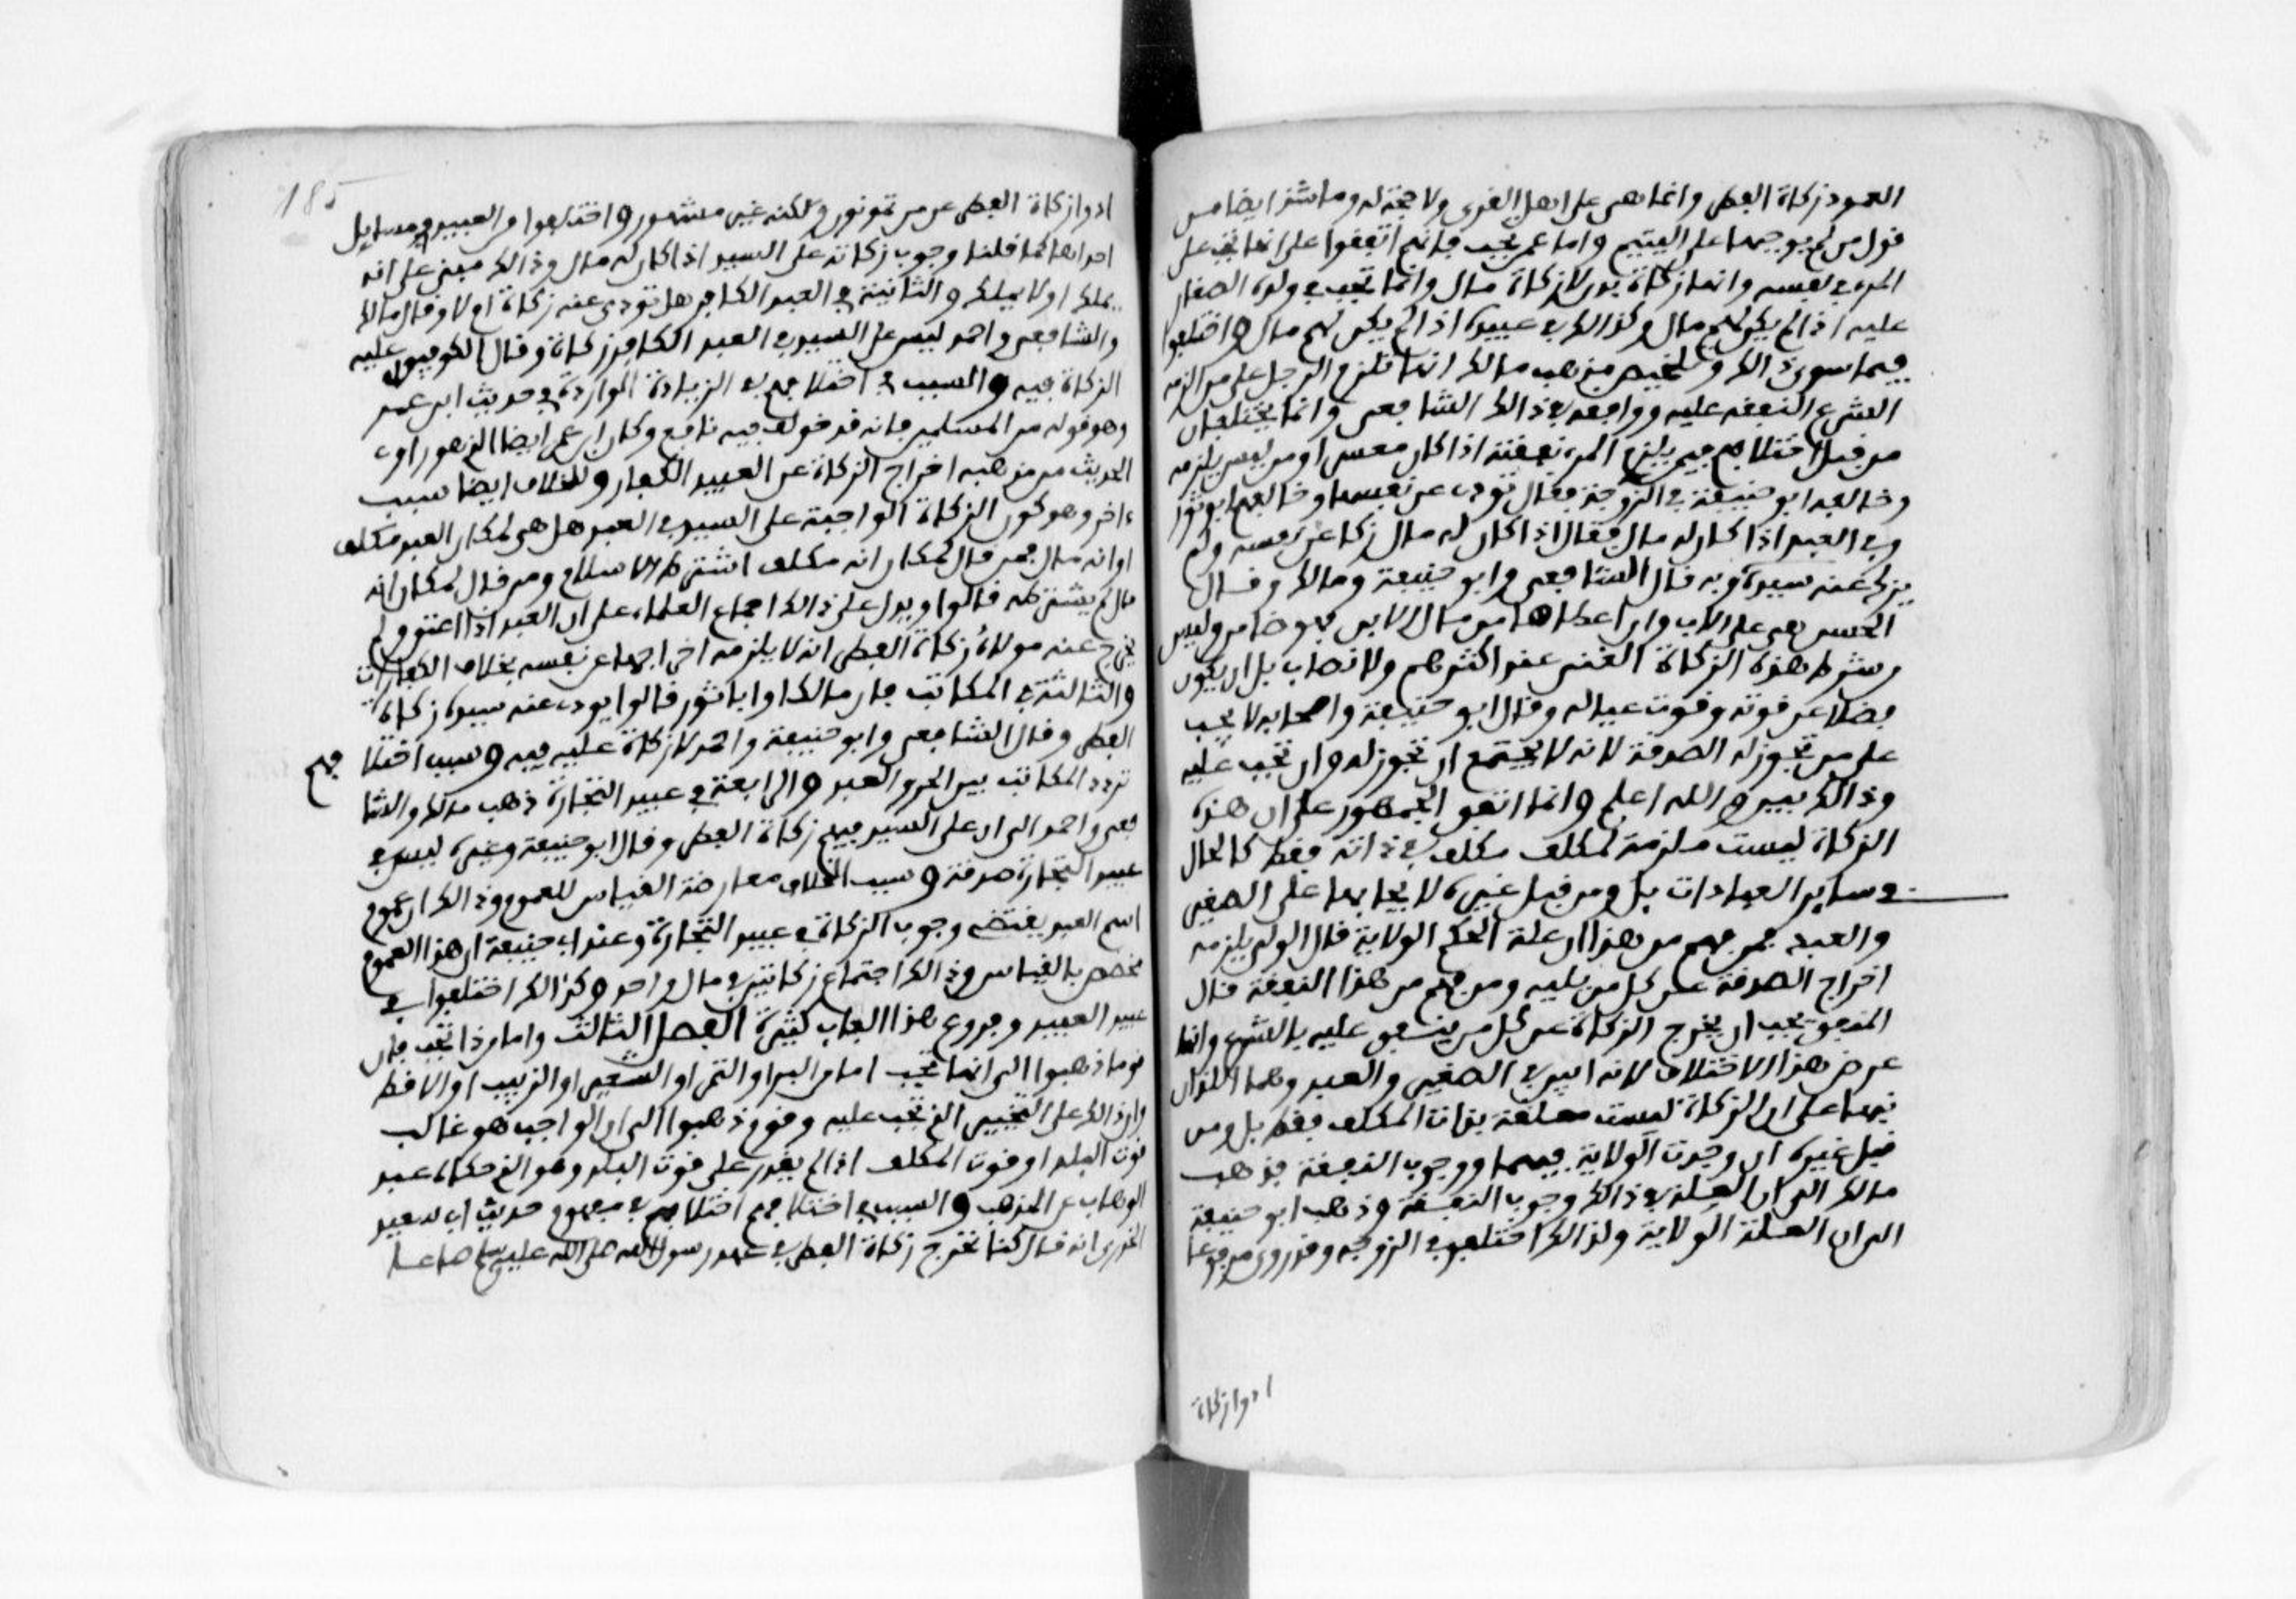 العمود زكاة الفطر وانما هى على اهل القرى ولا حجة له وما شذ ايضا من
قول من لم يوجبها على اليتيم واما عمن تجب فانهم اتفقوا على انها تجب على
المرء في نفسه وانها زكاة بدن لا زكاة مال وانها تجب في ولده الصغار
عليه اذا لم يكن لهم مال وكذلك في عبيده اذا لم يكن لهم مال واختلفوا
فيما سوى ذالك وتلخيص مذهب مالك انها تلزم الرجل على من الزمه
الشرع النفقة عليه ووافقه في ذالك الشافعى وانما يختلفان
من قبل اختلافهم فيمن يلزم المرء نفقته اذا كان معسرا ومن ليس يلزمه
وخالفه ابو حنيفة في الزوجة فقال تودى عن نفسها وخالفهم ابو ثور
في العبد اذا كان له مال فقال اذا كان له مال زكا عن نفسه ولم
يزك عنه سيده وبه قال الشافعى وابو حنيفة ومالك وقال
الحسن هى على الاب وان اعطاها من مال الابن فهو ضامن وليس
من شرط هذه الزكاة الغنى عند اكثرهم ولا نصاب بل ان يكون
فضلا عن قوته وقوت عياله وقال ابو حنيفة واصحابه لا تجب
على من تجوز له الصدقة لانه لا يجتمع ان تجوز له وان تجب عليه
وذالك بين والله اعلم وانما اتفق الجمهور على ان هذه
الزكاة ليست ملزمة لمكلف مكلف في ذاته فقط كالحال
في ساير العبادات بل ومن قبل غيره لايجابها على الصغير
والعبد فمن فهم من هذا ان علة الحكم الولاية قال الولى يلزمه
اخراج الصدقة عن كل من يليه ومن فهم من هذا النفقة قال
المنفق يجب ان يخرج الزكاة عن كل من ينفق عليه بالشرع وانما
عرض هذا الاختلاف لانه اتفق في الصغير والعبد وهما اللذان
نبها على ان الزكاة ليست معلقة بذات المكلف فقط بل ومن
قبل غيره ان وجدت الولاية فيهما ووجوب النفقة فذهب
مالك الى ان العلة في ذالك وجوب النفقة وذهب ابو حنيفة
الى ان العلة الولاية ولذالك اختلفوا في الزوجة وقد روى مرفوعا
ادوا زكاة
185
ادوا زكاة الفطر عن من تمونون ولكنه غير مشهور واختلفوا من العبيد في مسايل
احداها كما قلنا وجوب زكاته على السيد اذا كان له مال وذالك مبنى على انه
يملك او لا يملك والثانية في العبد الكافر هل تودى عنه زكاة ام لا وقال مالك
والشافعى واحمد ليس على السيد في العبد الكافر زكاة وقال الكوفيون عليه
الزكاة فيه والسبب في اختلافهم في الزيادة الواردة في حديث ابن عمر
وهو قوله من المسلمين فانه قد خولف فيه نافع وكان ابن عمر ايضا الذى هو راوى
الحديث من مذهبه اخراج الزكاة عن العبيد الكفار وللخلاف ايضا سبب
ءاخر وهو كون الزكاة الواجبة على السيد في العبد هل هى لمكان العبد مكلف
او انه مال فمن قال لمكان انه مكلف اشترط الاسلام ومن قال لمكان انه
مال لم يشترطه قالوا ويدل على ذالك اجماع العلماء على ان العبد اذا اعتق ولم
يخرج عنه مولاه زكاة الفطر انه لا يلزمه اخراجها عن نفسه بخلاف الكفارات
والثالثة في المكاتب فان مالكا وابا ثور قالوا يودى عنه سيده زكاة
الفطر وقال الشافعى وابو حنيفة واحمد لا زكاة عليه فيه وسبب اختلافهم
تردد المكاتب بين الحر والعبد والرابعة في عبيد التجارة ذهب مالك والشا
فعى واحمد الى ان على السيد فيهم زكاة الفطر وقال ابو حنيفة وغيره ليس في
عبيد التجارة صدقة وسبب الخلاف معارضة القياس للعموم وذالك ان عموم
اسم العبد يقتضى وجوب الزكاة في عبيد التجارة وعند ابى حنيفة ان هذا العموم
مخصص بالقياس وذالك اجتماع زكاتين في مال واحد وكذالك اختلفوا في
عبيد العبيد وفروع هذا الباب كثيرة الفصل الثالث واما مماذا تجب فان
قوما ذهبوا الى انها تجب اما من البر او التمر او الشعير او الزبيب او الاقط
وان ذالك على التخيير الذى تجب عليه وقوم ذهبوا الى ان الواجب هو غالب
قوت البلد او قوت المكلف اذا لم يقدر على قوت البلد وهو الذى حكاه عبد
الوهاب عن المذهب والسبب في اختلافهم اختلافهم في مفهوم حديث ابى سعيد
الخدرى انه قال كنا نخرج زكاة الفطر في عهد رسول الله صلى الله عليه وسلم صاعا